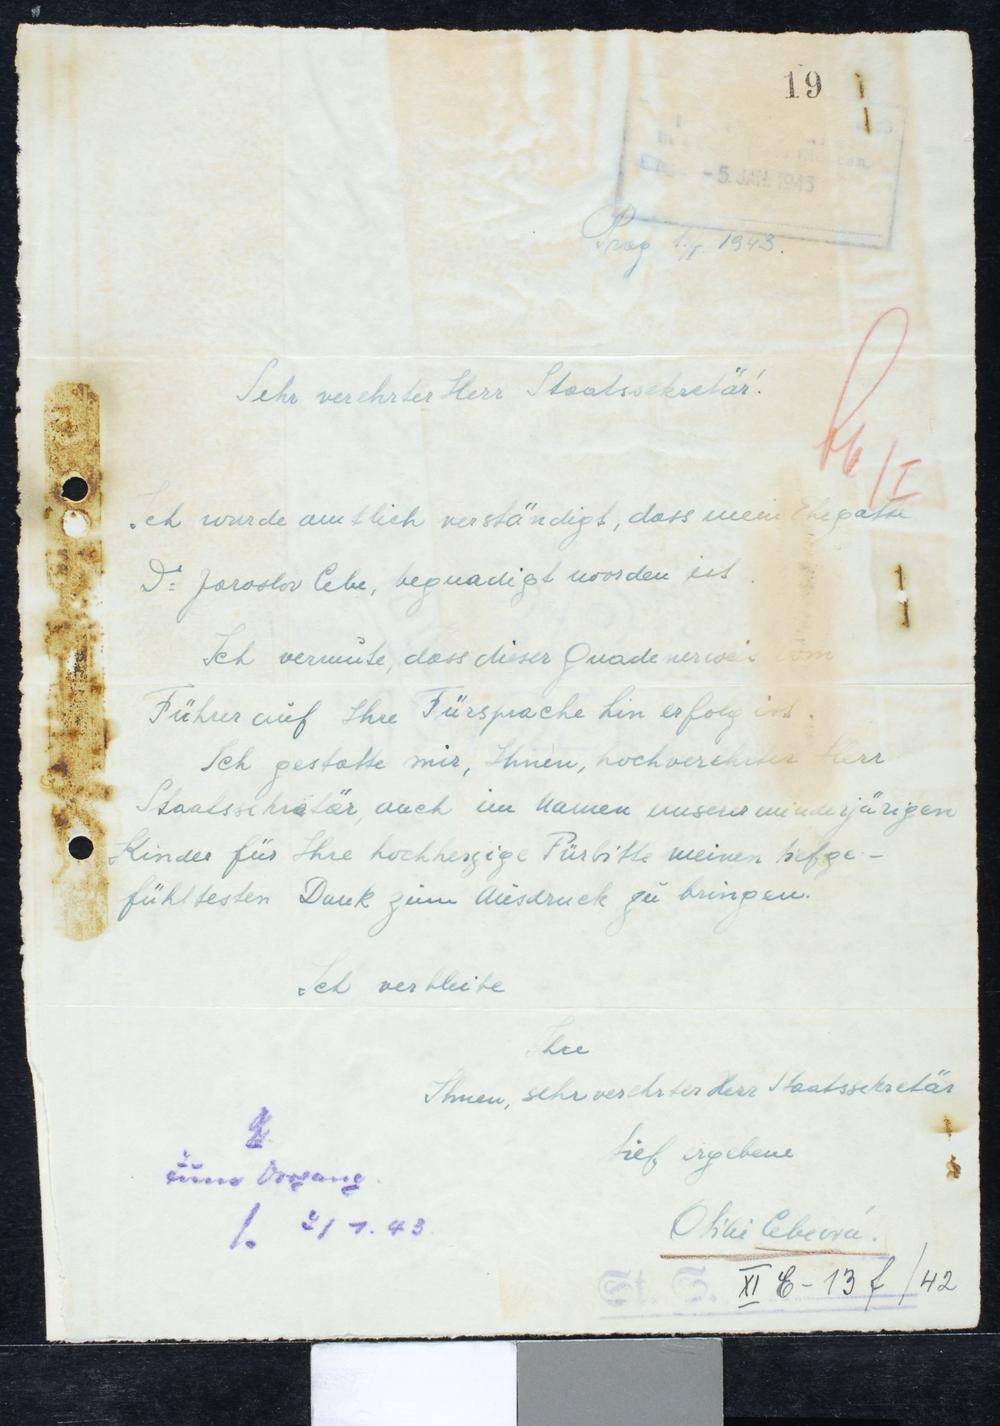 19
-5. JAN. 1943
Prag 1./I. 1943.
Sehr verehrter Herr Staatssekretär!
Ich wurde amtlich verständigt, dass mein Ehegatte
Dr. Jaroslov Cebe, begnadigt woorden ist.
Ich vermute, dass dieser Gnadenerweis vom
Führer auf Ihre Fürsprache hin erfolg ist.
Ich gestatte mir, Ihnen, hochverehrter Herr
Staatssekretär, auch im Namen unserer minderjärigen
Kinder für Ihre hochherzige Fürbitte meinen tiefge-
fühltesten Dank zum Ausdruck zu bringen.
Ich verbleibe
Ihre
Ihnen, sehr verehrter Herr Staatssekretär
tief ergebene
Cebeová.
zum Vorgang.
2/1. 43
St. S. XI C - 13 f / 42